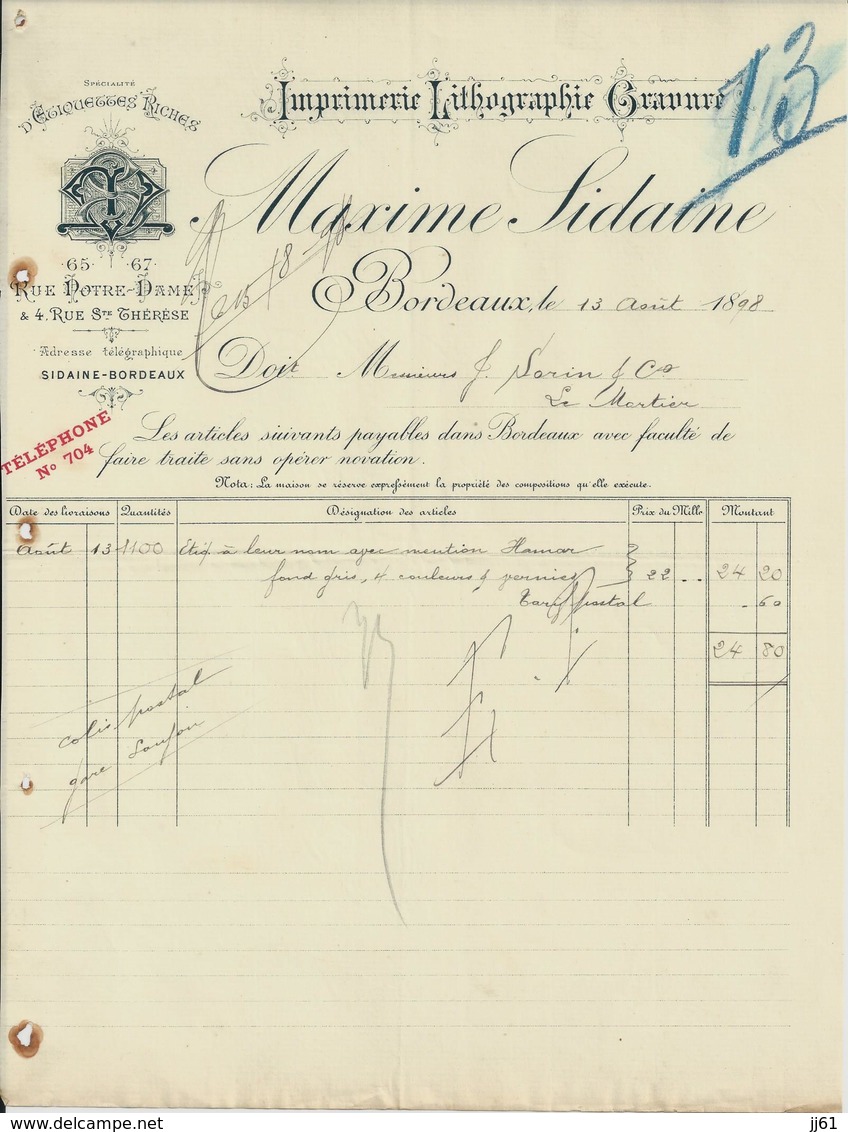 Spécialité
D'Etiquettes Riches
Imprimerie Lithographie Gravure
13
Maxime Sidaine
65 67
Rue Notre-Dame
& 4, Rue Ste Thérèse
Bordeaux, le 13 Août 1898
Adresse télégraphique
SIDAINE-BORDEAUX
Doit Messieurs J. Sorin & Co
Le Mortier
TÉLÉPHONE
No 704
Les articles suivants payables dans Bordeaux avec faculté de
faire traite sans opérer novation.
Nota: La maison se réserve expressément la propriété des compositions qu'elle exécute.
Date des livraisons Quantités Désignation des articles Prix du Mille Montant
Août 13 1100 Etiq. à leur nom avec mention Hamar
fond gris, 4 couleurs & vernies 22 .. 24 20
postal - 60
24 80
colis postal
gare Saujon
jj61